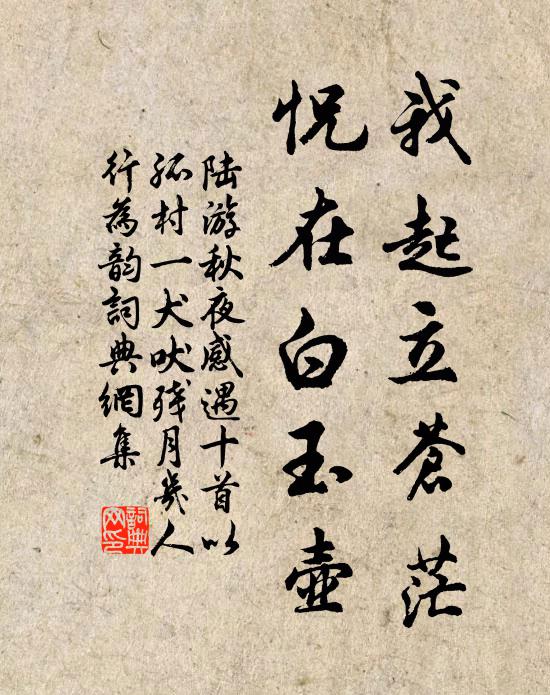 我起立苍茫
怳在白玉壶
陆游秋夜感遇十首以
孤村一犬吠残月几人
行为韵词典网集